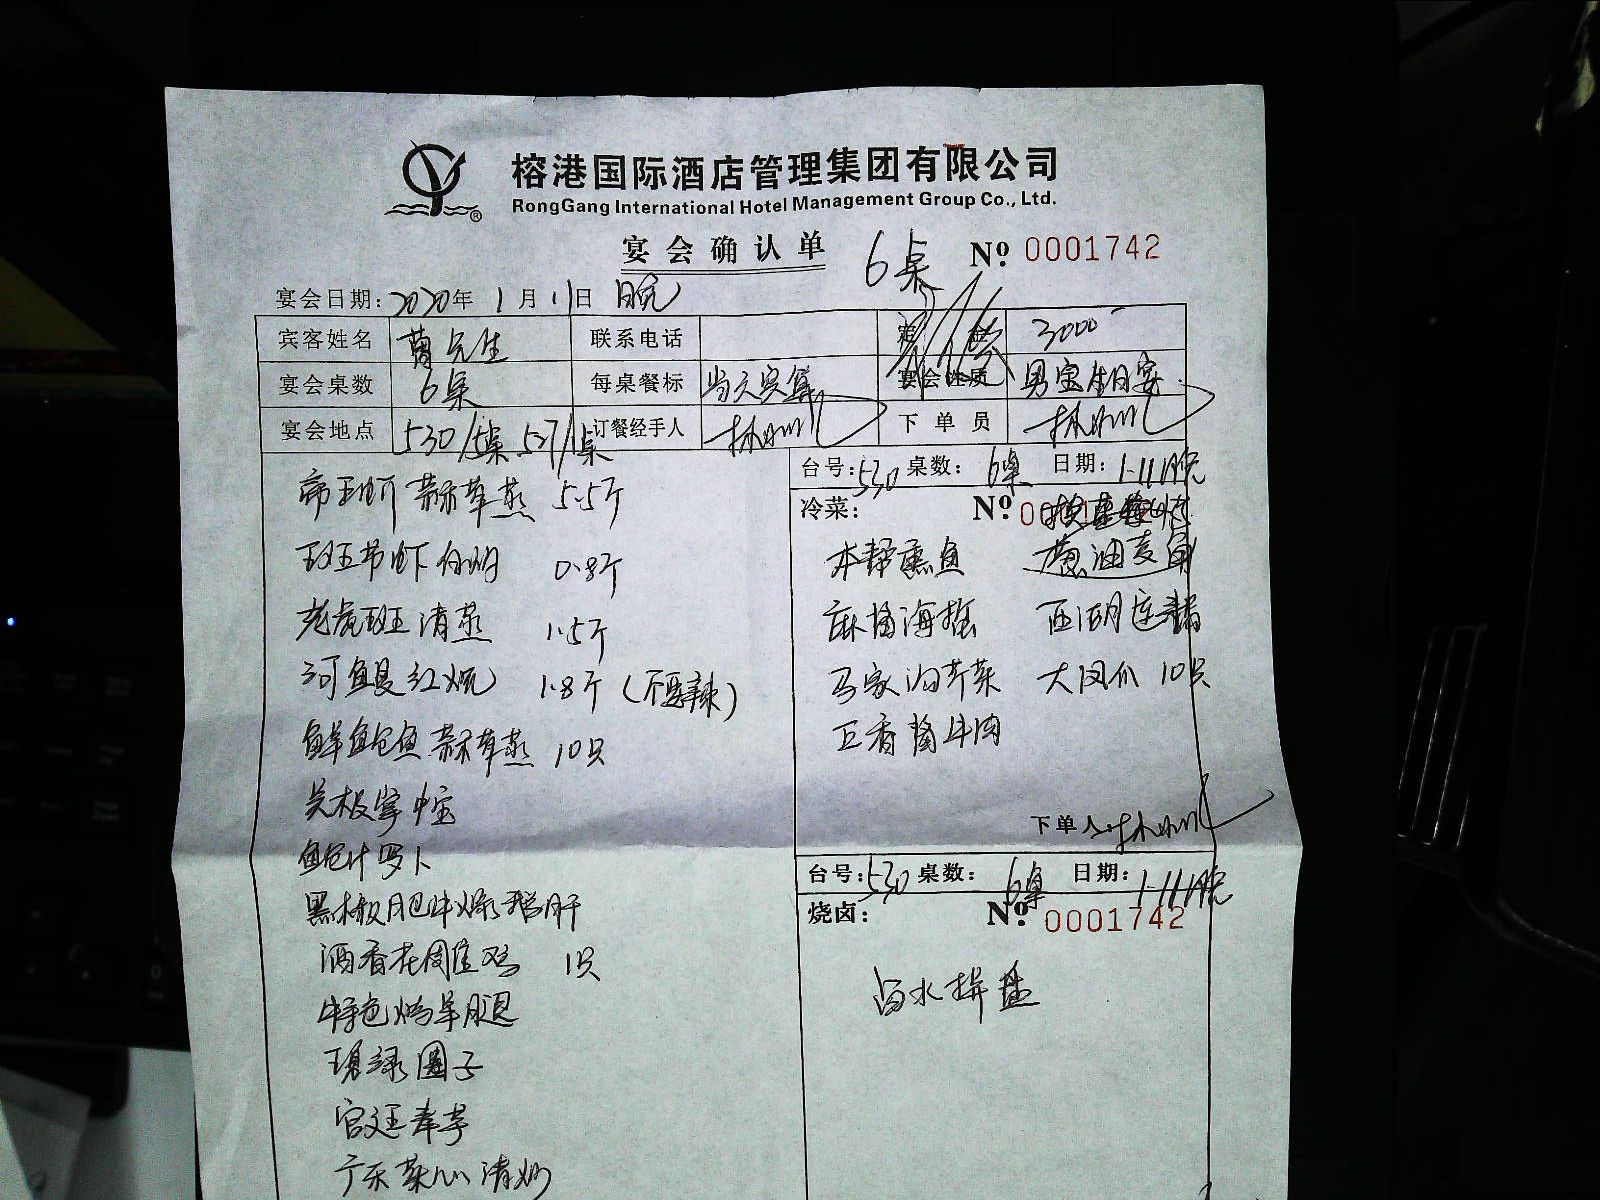 榕港国际酒店管理集团有限公司
RongGang International Hotel Management Group Co., Ltd.
宴会确认单 6桌 No. 0001742
宴会日期: 2020年1月11日 晚
宾客姓名 先生 联系电话 3000
宴会桌数 6桌 每桌餐标 当天宾算 宴会性质 男宝生日宴
宴会地点 530/5桌 527/1桌 订餐经手人 下单员
台号:530 桌数: 6桌 日期: 1.11晚
帝王蚧蒜蓉蒸 5.5斤
冷菜: No.
班节虾白灼 0.8斤
本帮熏鱼 葱油
老虎斑清蒸 1.5斤
麻酱海蜇 西湖莲藕
河鳗红烧 1.8斤 (不要辣)
马家沟芹菜 大凤爪 10只
鲜鲍鱼蒜蓉蒸 10只
五香酱牛肉
掌中宝
下单人:
鲍汁罗卜
台号:530 桌数: 6桌 日期: 1.11晚
黑椒牛爆鹅肝
烧卤: No. 0001742
酒香花雕鸡 1只
卤水拼盘
特色烤羊腿
碧绿圆子
宫廷
广东菜心清炒